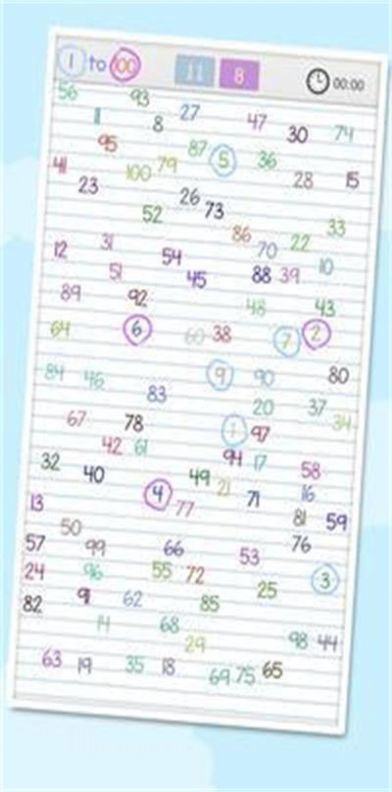 1 to 100 11 8 00:00
56 93
11 8 27 47 30 74
95 87 5 36
41 100 79 28 15
23 26 73
52 86 33
12 31 54 70 22
51 45 88 39 10
89 92 48 43
64 6 60 38 7 2
84 46 9 90 80
83 20 37
67 78 1 97 34
42 61 94 17 58
32 40 49 21 71 16
13 4 77 81 59
50 76
57 99 66 53
24 96 55 72 25 3
82 91 62 85
14 68
29 98 44
63 19 35 18 69 75 65